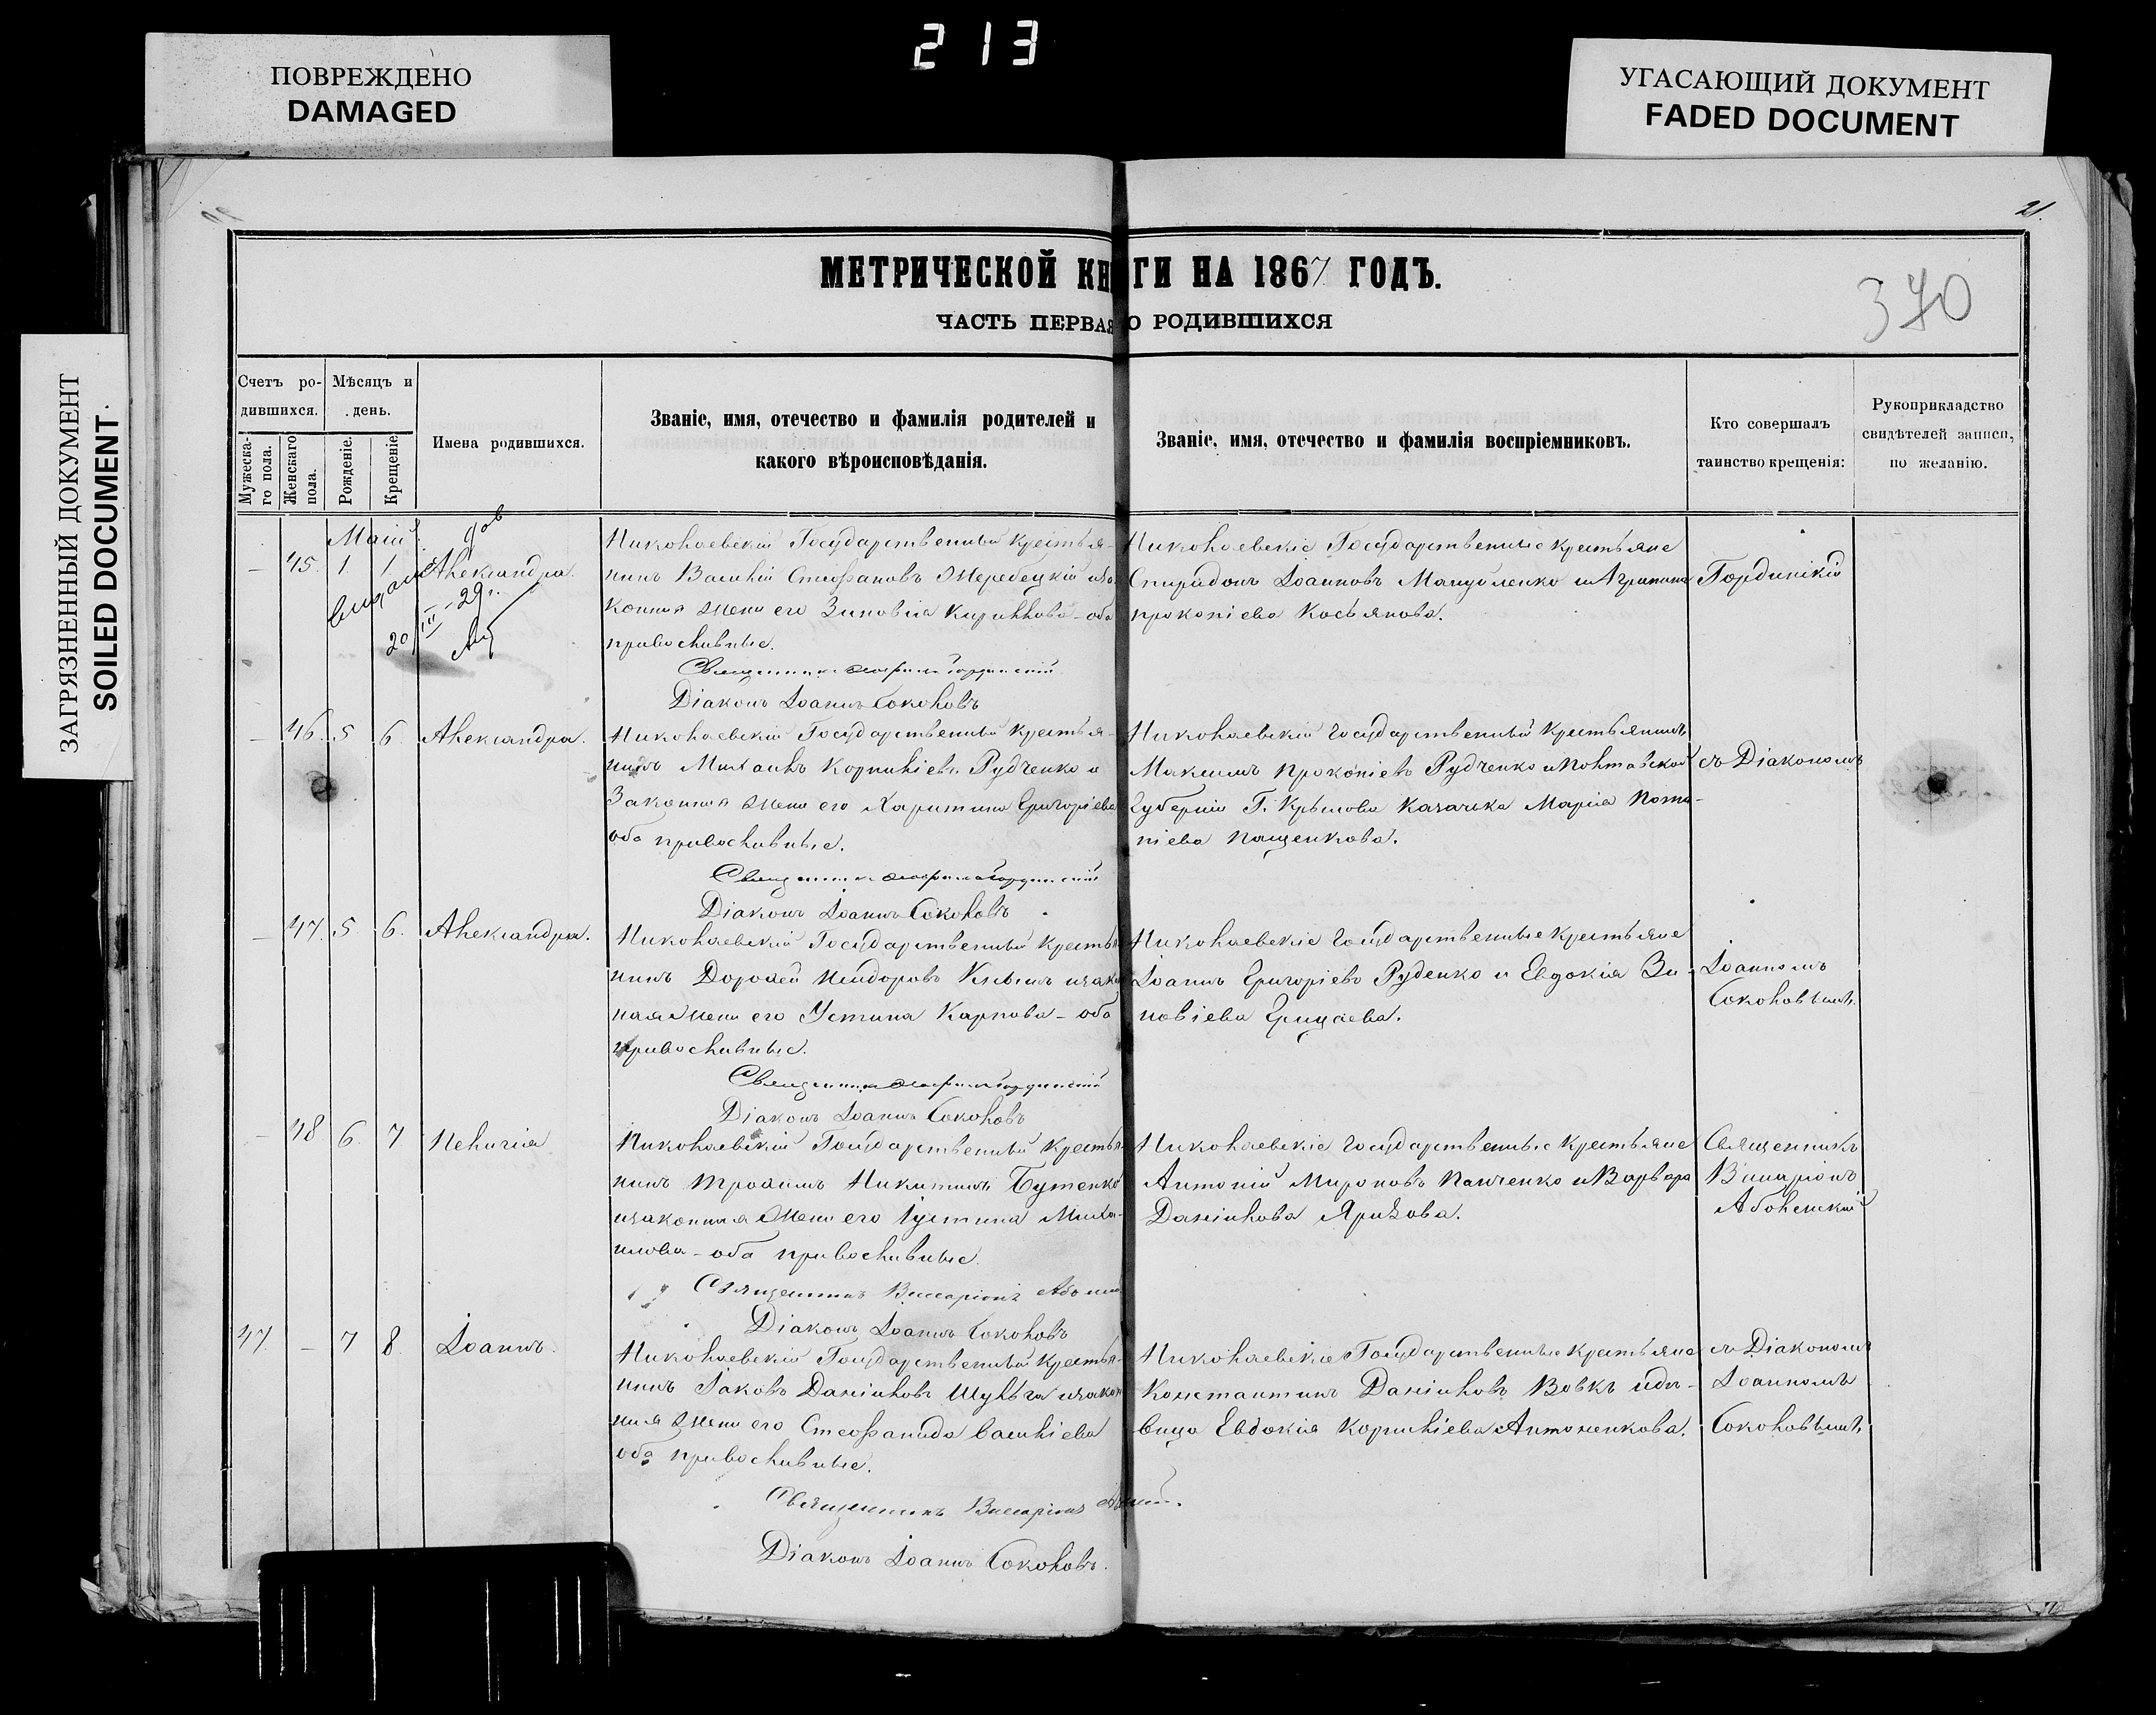 213
ПОВРЕЖДЕНО
DAMAGED
УГАСАЮЩИЙ ДОКУМЕНТ
FADED DOCUMENT
ЗАГРЯЗНЕННЫЙ ДОКУМЕНТ
SOILED DOCUMENT
21.
МЕТРИЧЕСКОЙ КНИГИ НА 1867 ГОДЪ.
ЧАСТЬ ПЕРВАЯ О РОДИВШИХСЯ
370
Счетъ ро-
дившихся.
Мужеска-
го пола.
Женскаго
пола.
Мѣсяцъ и
день.
Рожденіе.
Крещеніе.
Имена родившихся.
Званіе, имя, отечество и фамилія родителей и
какого вѣроисповѣданія.
Званіе, имя, отечество и фамилія воспріемниковъ.
Кто совершалъ
таинство крещенія:
Рукоприкладство
свидѣтелей записи,
по желанію.
Маій
— 45. 1 1 Александра.
20/III-29г.
Николаевскій Государственный крестья-
нинъ Василій Стефановъ Жеребецкій и за
конная жена его Зиновія Кириллова - оба
православные.
Священникъ Гординскій
Діаконъ Іоаннъ Соколовъ
Николаевскіе Государственные крестьяне
Спиридонъ Іоанновъ Мацуленко и Агрипина
прокопіева Косьянова.
Гординскій
— 46. 5 6 Александра.
Николаевскій Государственный крестья-
нинъ Михаилъ Корниліевъ Рудченко и
Законная жена его Харитина Григоріева
оба православные.
Священникъ Гординскій
Діаконъ Іоаннъ Соколовъ
Николаевскій Государственный крестьянинъ
Максимъ Прокопіевъ Рудченко и Полтавской
Губерніи Г. Крылова казачка Марія Пота-
піева Пащенкова.
съ Діакономъ
— 47. 5 6. Александра.
Николаевскій Государственный крестья
нинъ Дорофей Исидоровъ и закон
ная жена его Устина Карпова - оба
православные.
Священникъ Гординскій
Діаконъ Іоаннъ Соколовъ
Николаевскіе Государственные крестьяне
Іоаннъ Григоріевъ Руденко и Евдокія Зи-
новіева Грицаева.
Іоанномъ
Соколовымъ.
— 48 6. 7 Пелагія
Николаевскій Государственный крестья
нинъ Трофимъ Никитинъ Бутенко
и законная жена его Іустина Михаи-
илова - оба православные.
Священникъ Виссаріонъ
Діаконъ Іоаннъ Соколовъ
Николаевскіе Государственные крестьяне
Антоній Мироновъ Панченко и Варвара
Даніилова Ярихова.
Священникъ
Виссаріонъ
Аболенскій
47. — 7 8. Іоаннъ.
Николаевскій Государственный крестья-
нинъ Іаковъ Даніиловъ Шульга и закон
ная жена его Стефанида Василіева
оба православные.
Священникъ Виссаріонъ
Діаконъ Іоаннъ Соколовъ.
Николаевскіе Государственные крестьяне
Константинъ Даніиловъ Вовкъ и дѣ-
вица Евдокія Корниліева Антоненкова.
съ Діакономъ
Іоанномъ
Соколовымъ.